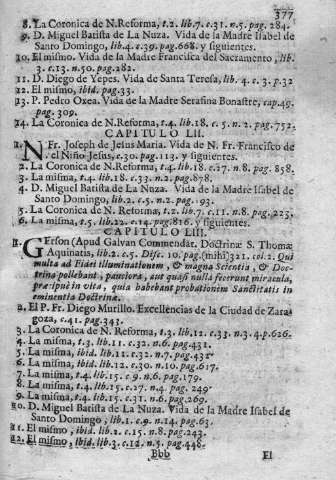 377
8. La Coronica de N. Reforma, t.2. lib.7. c.31. n.5. pag. 284.
9. D. Miguel Batista de La Nuza. Vida de la Madre Isabel de
Santo Domingo, lib.4. c.39. pag.668. y siguientes.
10. El mismo. Vida de la Madre Francisca del Sacramento, lib.
3. c.13. n.50. pag.282.
11. D. Diego de Yepes. Vida de Santa Teresa, lib. 4. c. 3. p.32
12. El mismo, ibid. pag.33.
13. P. Pedro Oxea. Vida de la Madre Serafina Bonastre, cap.49.
pag. 309.
14. La Coronica de N. Reforma, t.4. lib.18. c.5. n.2. pag.752.
CAPITULO LII.
1. N Fr. Joseph de Jesus Maria. Vida de N. Fr. Francisco de
el Niño Jesus, c.30. pag.113. y siguientes.
2. La Coronica de N. Reforma, t.4. lib.18. c.27. n.8. pag. 858.
3. La misma, t.4. lib.18. c.33. n.2. pag.878.
4. D. Miguel Batista de La Nuza. Vida de la Madre Isabel de
Santo Domingo, lib.2. c.5. n.2. pag. 93.
5. La Coronica de N. Reforma, t.2. lib.7. c.11. n.8. pag. 223.
6. La misma, t.5. lib.22. c.14. pag.816. y siguientes.
CAPITULO LIII.
1. Gerson (Apud Galvan Commendat. Doctrinæ S. Thomæ
Aquinatis, lib.2. c.5. Disc. 10. pag.(mihi)321. col.2. Qui
multa ad Fidei illuminationem, & magna Scientia, & Doc-
trina pollebant, pauciora, aut quasi nulla fecerunt miracula,
præcipuè in vita, quia habebant probationem Sanctitatis in
eminentia Doctrinæ.
2. El P. Fr. Diego Murillo. Excellencias de la Ciudad de Zara-
goza, c.41. pag.343.
3. La Coronica de N. Reforma, t.3. lib.12. c.33. n.3. 4. p.626.
4. La misma, t.3. lib.11. c.32. n.6. pag.431.
5. La misma, ibid. lib.11. c.32. n.7. pag.432
6. La misma, ibid. lib.12. c.30. n.10. pag.617.
7. La misma, t.4. lib.15. c.9. n.6. pag.179.
8. La misma, t.4. lib.15. c.27. n.4. pag. 249.
9. La misma, t.4. lib.15. c.31. n.6. pag.269.
10. D. Miguel Batista de La Nuza. Vida de la Madre Isabel de
Santo Domingo, lib.1. c.9. n.14. pag.63.
11. El mismo, ibid. lib.1. c.15. n.8. pag.243.
12. El mismo, ibid. lib.3. c.12. n.5. pag.446.
Bbb El